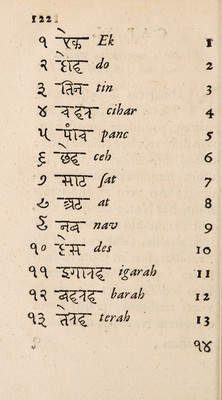 122
१ ऐक Ek 1
२ दोह do 2
३ तिन tin 3
४ चहार cihar 4
५ पांच panc 5
६ छेह ceh 6
७ साट ſat 7
८ अट at 8
९ नव nav 9
१० देस des 10
११ इगारह igarah 11
१२ बहरह barah 12
१३ तेरह terah 13
१४